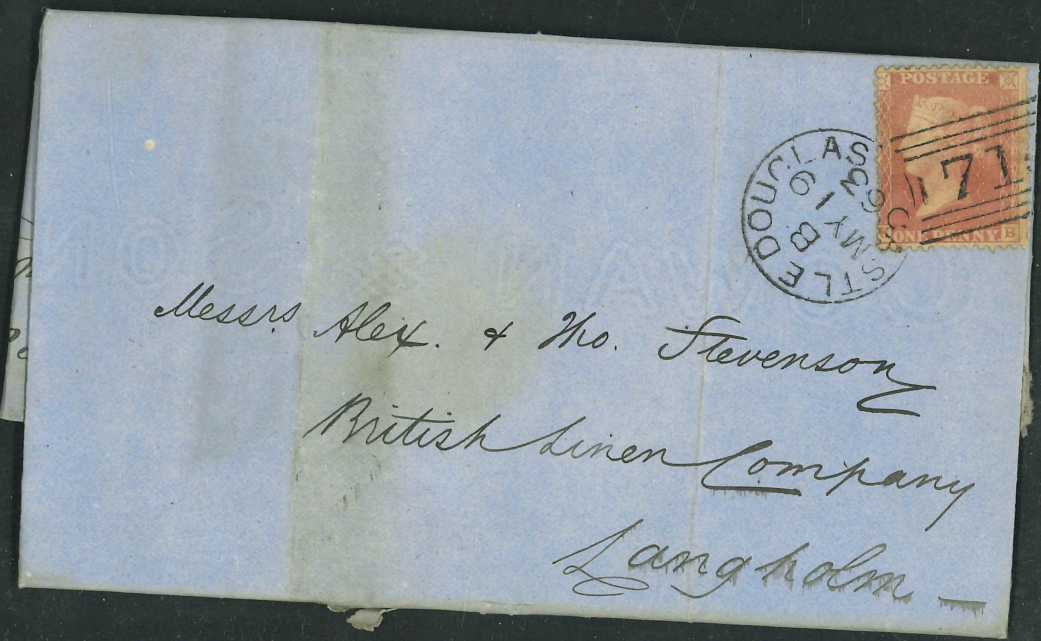 POSTAGE
ONE PENNY B
71
CASTLE DOUGLAS
MY 8
1863
Messrs Alex. & Tho. Stevenson
British Linen Company
Langholm